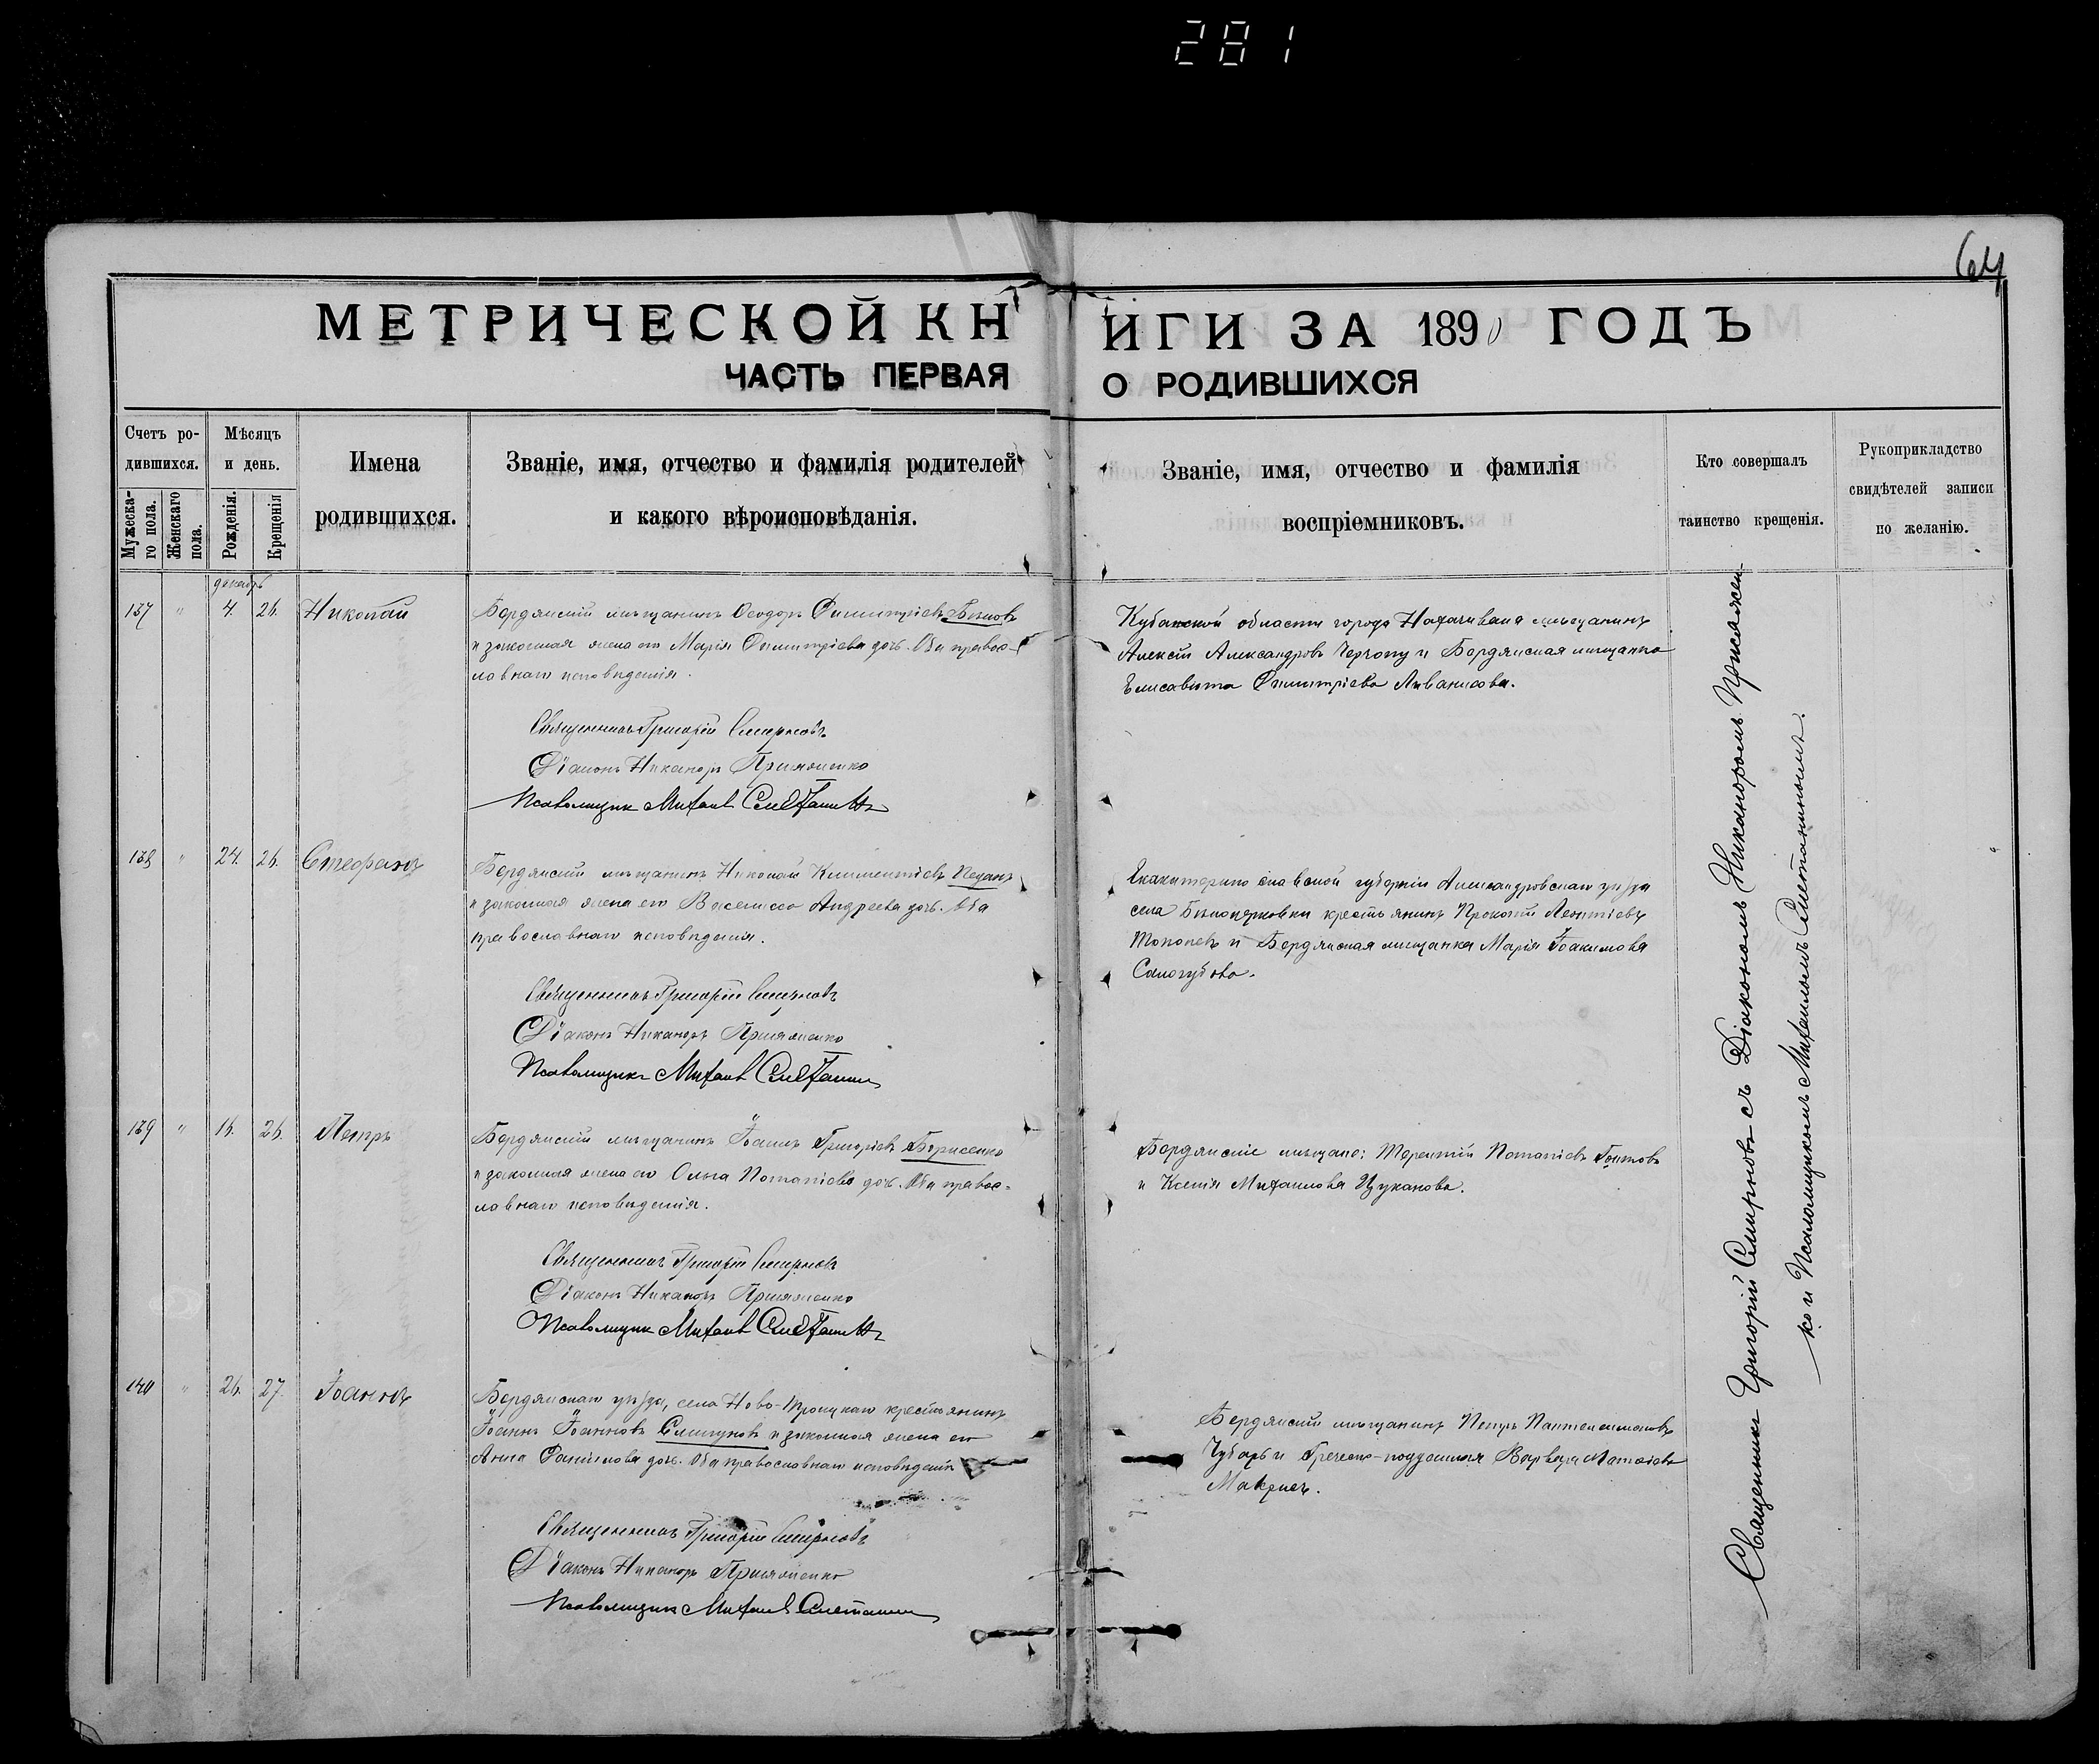 281
64
МЕТРИЧЕСКОЙ КНИГИ ЗА 1890 ГОДЪ
ЧАСТЬ ПЕРВАЯ О РОДИВШИХСЯ
Счетъ ро-
дившихся.
Мужеска-
го пола.
Женскаго
пола.
Мѣсяцъ
и день.
Рожденія.
Крещенія
Имена
родившихся.
Званіе, имя, отчество и фамилія родителей
и какого вѣроисповѣданія.
Званіе, имя, отчество и фамилія
воспріемниковъ.
Кто совершалъ
таинство крещенія.
Рукоприкладство
свидѣтелей записи
по желанію.
декабрь
137 " 4. 26. Николай
Бердянскій мѣщанинъ Ѳеодоръ Димитріевъ Бѣловъ
и законная жена его Марія Димитріева дочь. Оба правос-
лавнаго исповѣданія.
Кубанской области города мѣщанинъ
Алексѣй Александровъ и Бердянская мѣщанка
Елисавета Димитріева
Священникъ Григорій Смирновъ
Діаконъ Никаноръ Присяженко
Псаломщикъ Михаилъ Сметанинъ
138 " 24. 26. Стефанъ
Бердянскій мѣщанинъ Николай Климентіевъ
и законная жена его Василисса Андреева дочь. Оба
православнаго исповѣданія.
Екатеринославской губерніи Александровскаго уѣзда
села Бѣлоцерковки крестьянинъ Прокопій Леонтіевъ
и Бердянская мѣщанка Марія Іоакимова
Самогубова.
Священникъ Григорій Смирновъ
Діаконъ Никаноръ Присяженко
Псаломщикъ Михаилъ Сметанинъ
139 " 16. 26. Петръ
Бердянскій мѣщанинъ Іоаннъ Григоріевъ Борисенко
и законная жена его Ольга Потапіева дочь. Оба правос-
лавнаго исповѣданія.
Бердянскіе мѣщане: Терентій Потапіевъ
и Ксенія Михаилова Цуканова.
Священникъ Григорій Смирновъ
Діаконъ Никаноръ Присяженко
Псаломщикъ Михаилъ Сметанинъ
140 " 26. 27. Іоаннъ
Бердянскаго уѣзда, села Ново-Троицкаго крестьянинъ
Іоаннъ Іоанновъ и законная жена его
Анна дочь. Оба православнаго исповѣданія
Бердянскій мѣщанинъ Петръ Пантелеимоновъ
Чубарь и Греческо-подданная Варвара Матѳіева
Макрисъ.
Священникъ Григорій Смирновъ
Діаконъ Никаноръ Присяженко
Псаломщикъ Михаилъ Сметанинъ
Священникъ Григорій Смирновъ съ Діакономъ Никаноромъ Присяжен-
ко и Псаломщикомъ Михаиломъ Сметанинымъ.